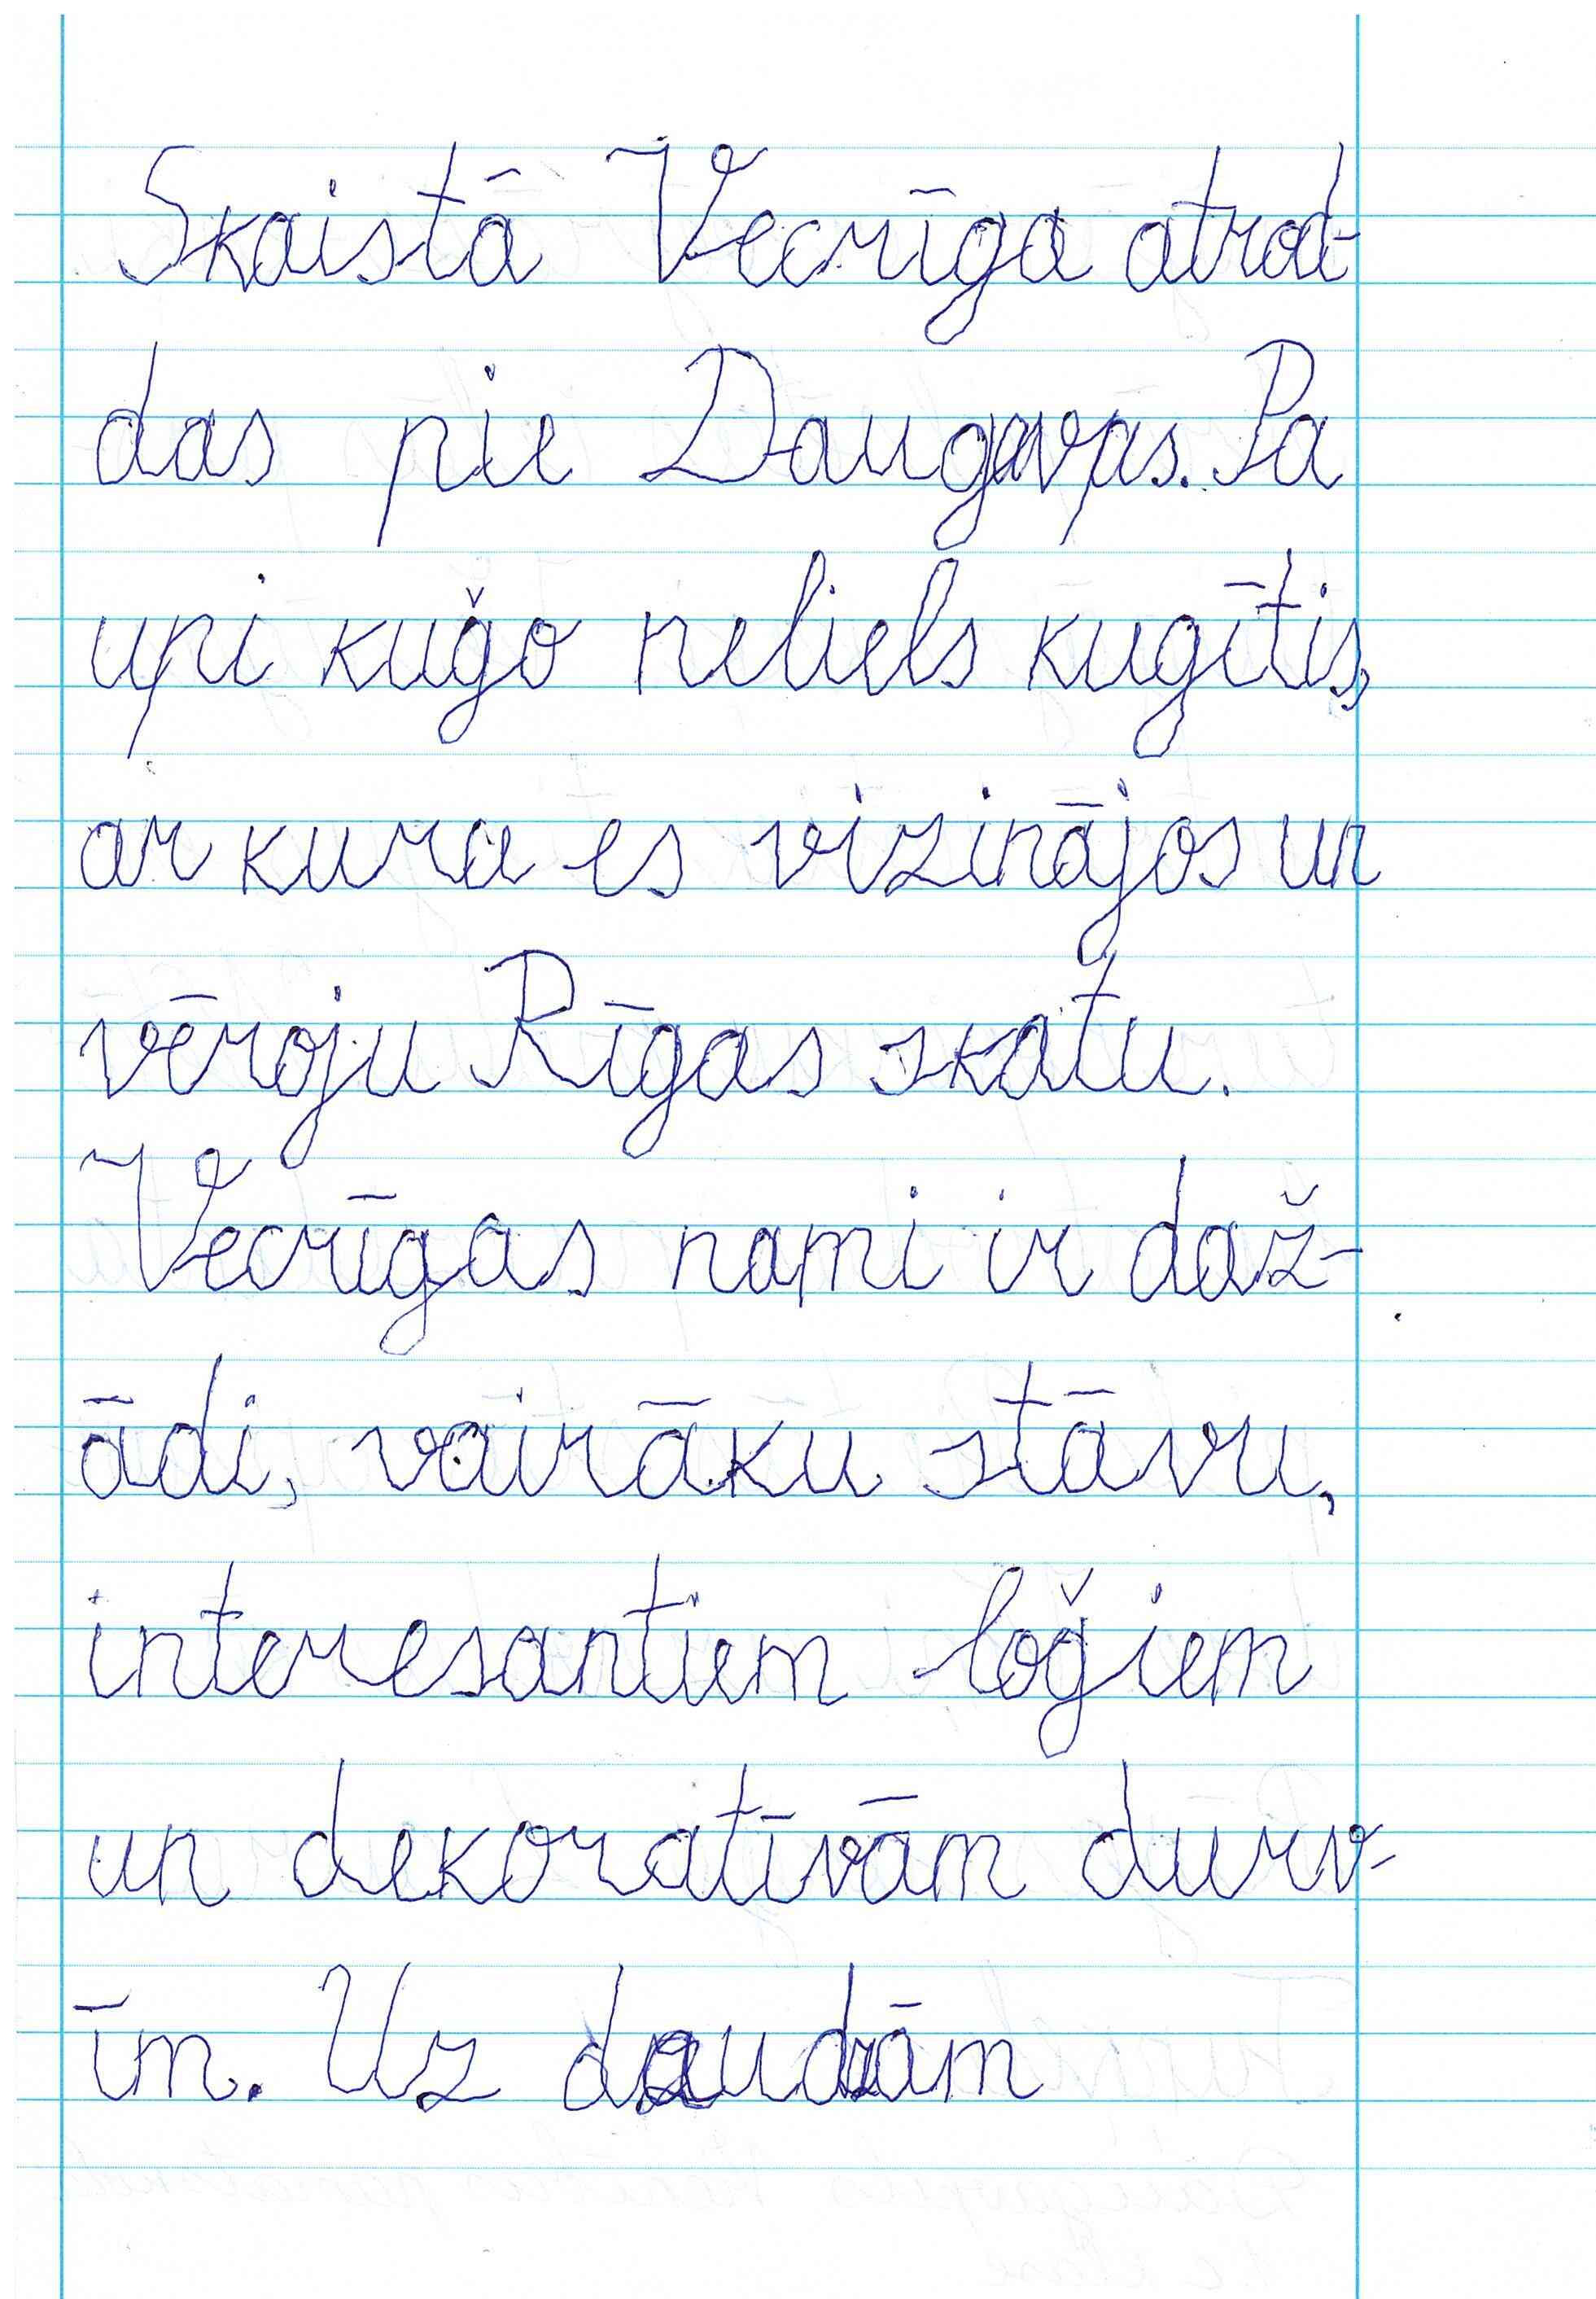 Skaistā Vecrīga atrod-
das pie Daugavas. Pa
upi kuģo neliels kugītis,
ar kura es vizinājos un
vēroju Rīgas skatu.
Vecrīgas nami ir daž-
ādi, vairāku stāvu,
interesantiem loģiem
un dekoratīvām durv-
īm. Uz daudzām